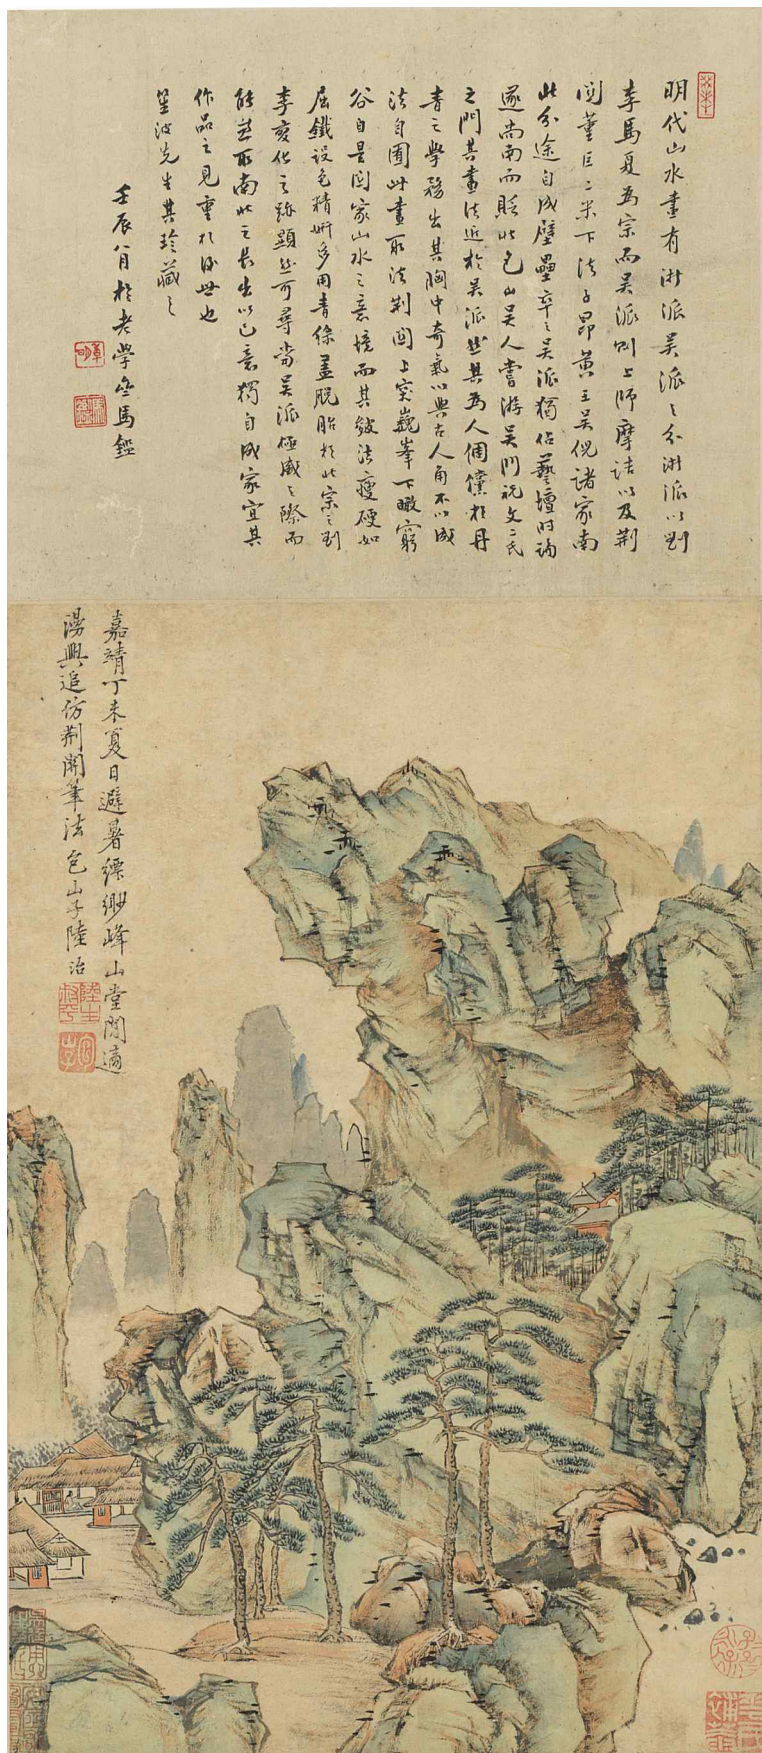 明代山水畫有浙派吳派之分浙派以劉
李馬夏為宗而吳派則上師摩詰以及荆
関董巨二米下法子昂黃王吳倪諸家南
北分途自成壁壘卒之吳派獨佔藝壇時論
遂尚南而貶北包山吳人嘗游吳門祝文二氏
之門其畫法近於吳派然其為人倜儻於丹
青之學務出其胸中奇氣以與古人角不以成
法自囿此畫取法荆関上突巍峯下瞰窮
谷自是関家山水之意境而其皴法瘦硬如
屈鐵設色精妍多用青綠盖脫胎於北宗之劉
李變化之跡顯然可尋當吳派極盛之際而
能兼取南北之長出以己意獨自成家宜其
作品之見重於後世也
笙波先生其珍藏之
壬辰八月於老學盦馬鑑
嘉靖丁未夏日避暑縹緲峰山堂閒適
漫興追仿荆関筆法包山子陸治